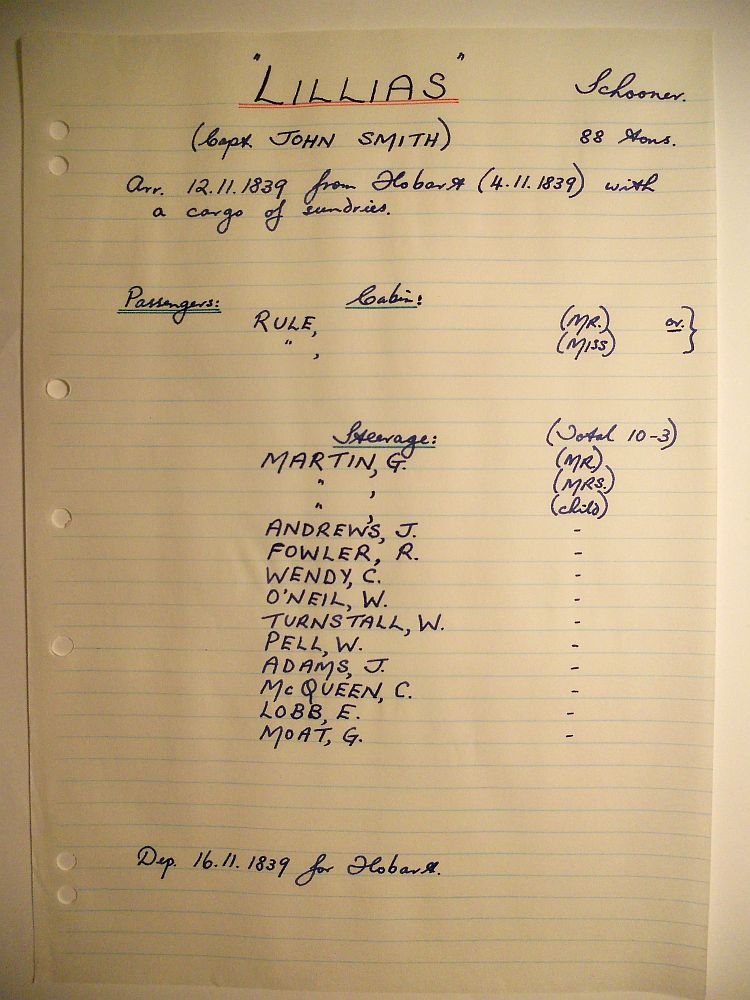 "LILLIAS" Schooner.
(Capt. JOHN SMITH) 88 tons.
Arr. 12.11.1839 from Hobart (4.11.1839) with
a cargo of sundries.
Passengers: Cabin:
RULE, (MR.) or. }
" , (MISS)
Steerage: (Total 10-3)
MARTIN, G. (MR)
" , (MRS.)
" , (child)
ANDREWS, J. -
FOWLER, R. -
WENDY, C. -
O'NEIL, W. -
TURNSTALL, W. -
PELL, W. -
ADAMS, J. -
McQUEEN, C. -
LOBB, E. -
MOAT, G. -
Dep. 16.11.1839 for Hobart.